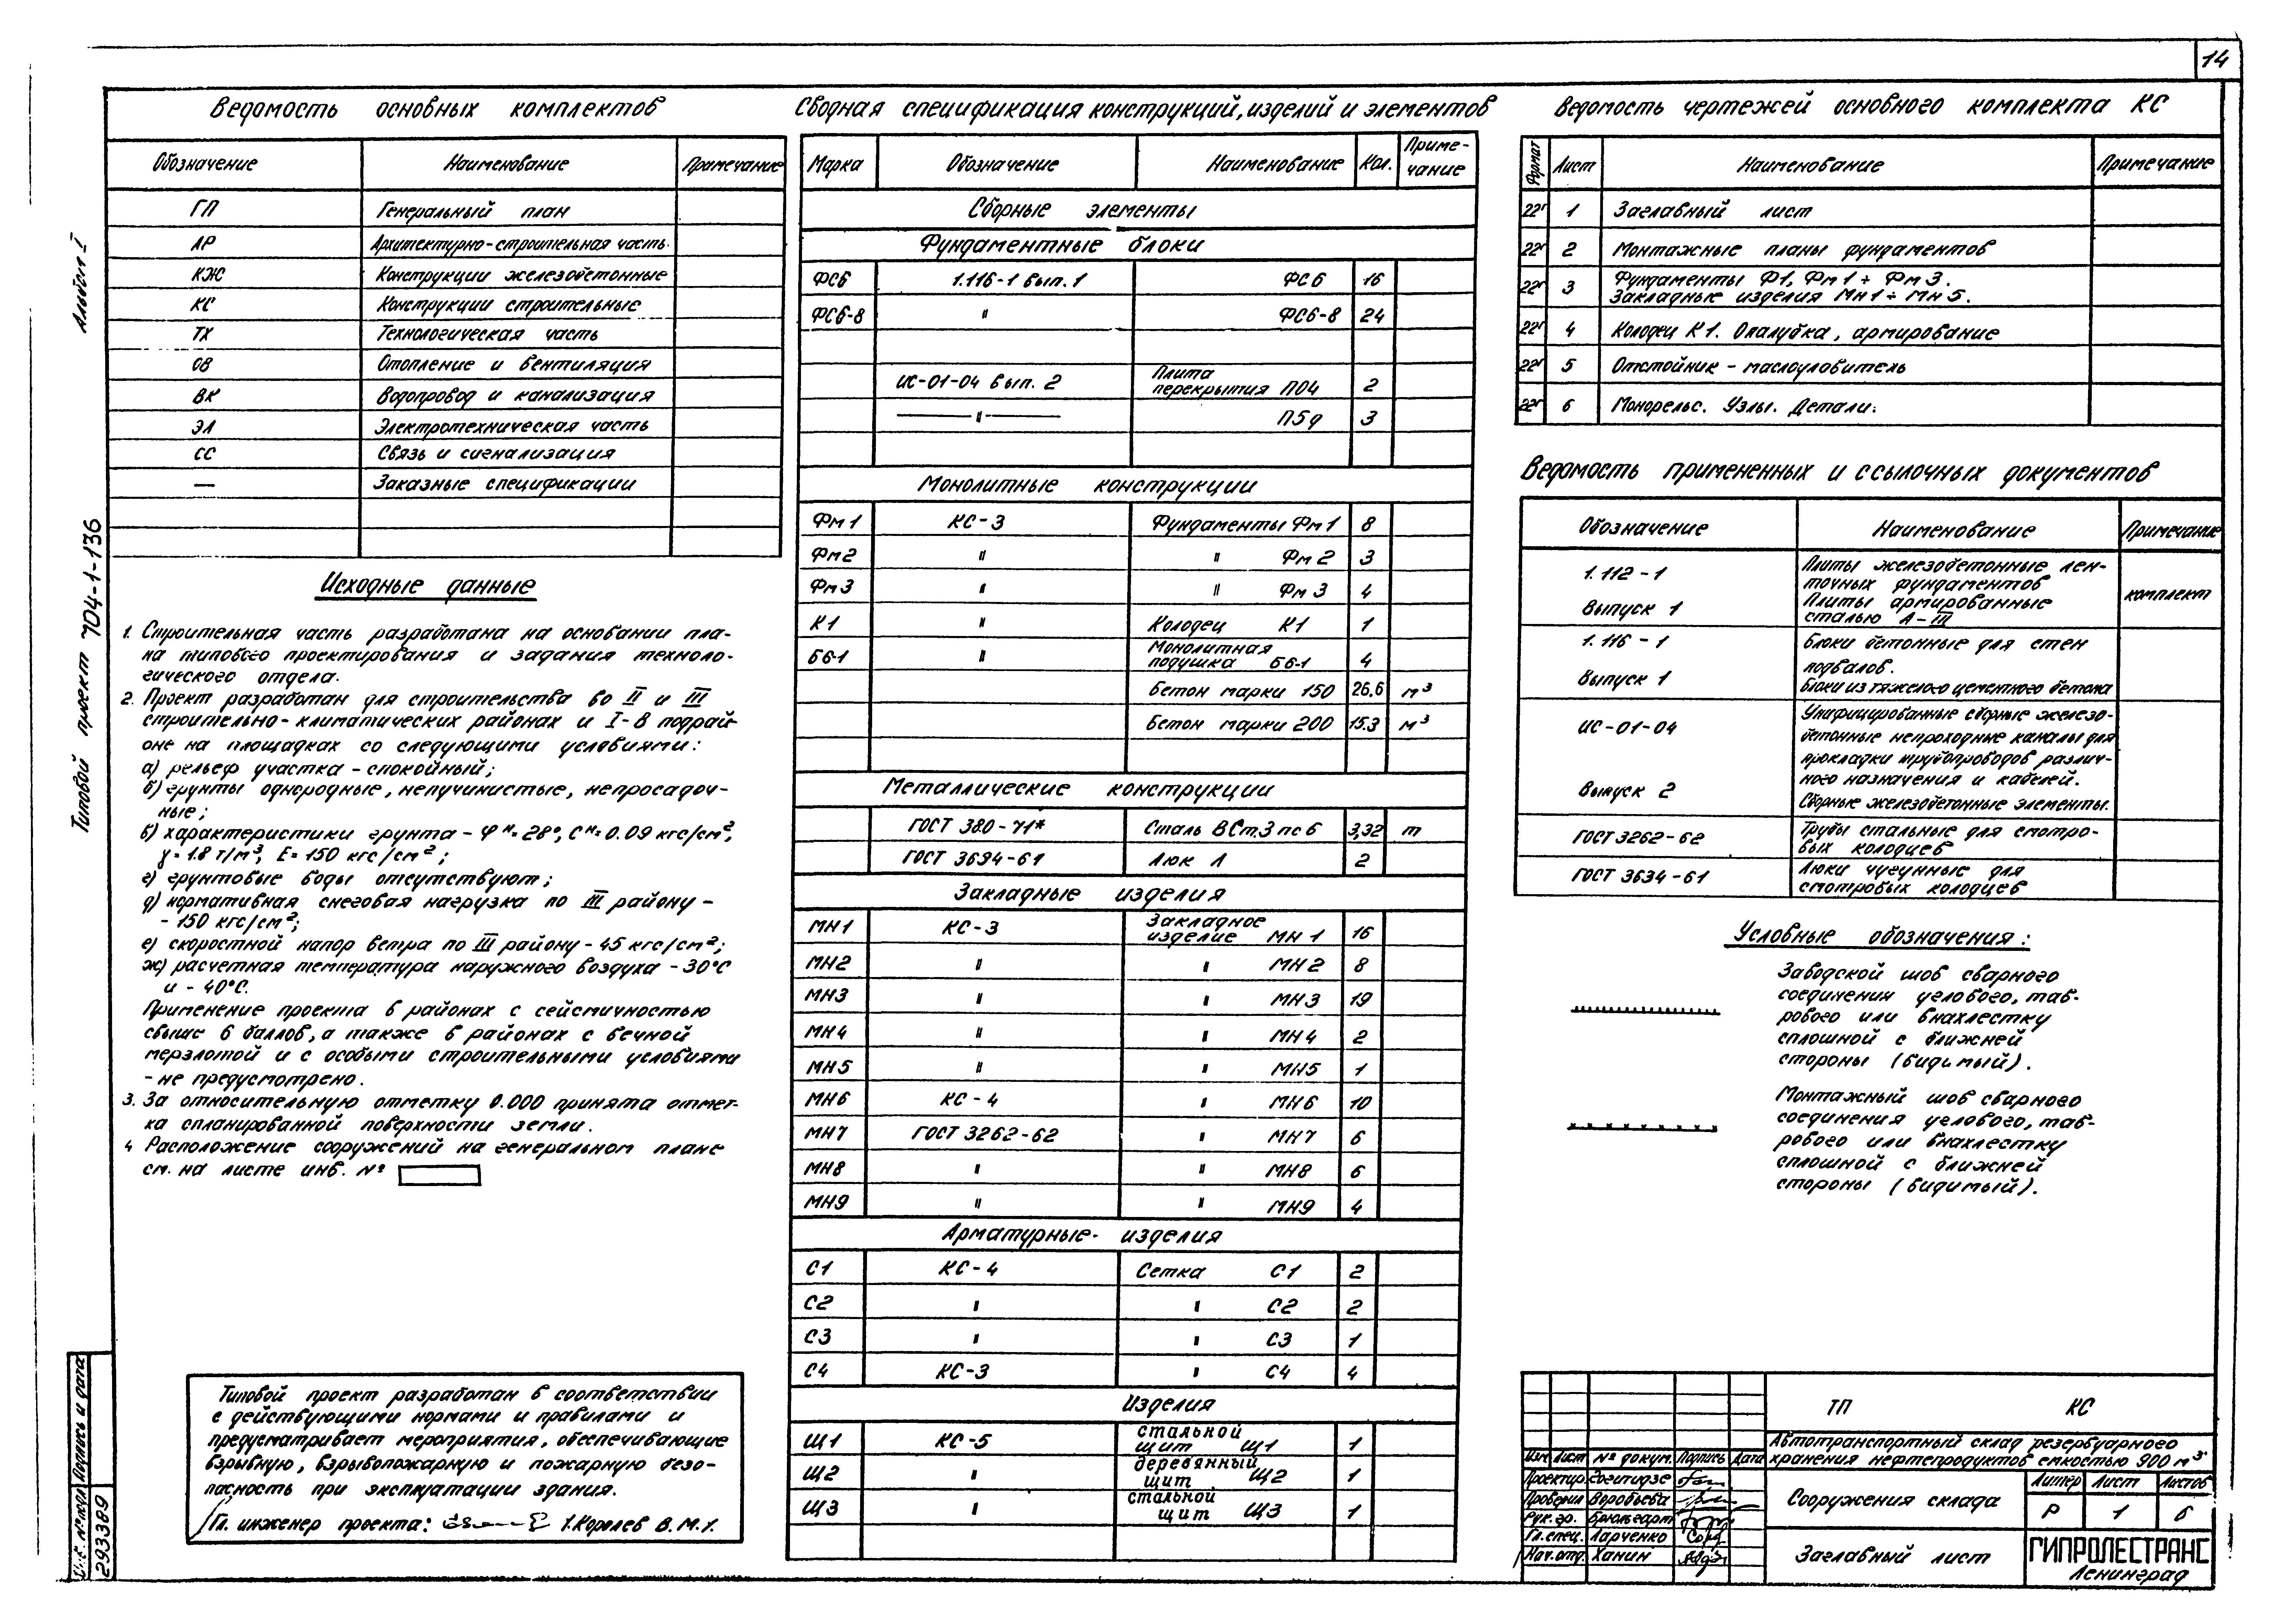 14
Альбом I
Типовой проект 704-1-136
Подпись и дата
293389
Ведомость основных комплектов
Обозначение Наименование Примечание
ГП Генеральный план
АР Архитектурно-строительная часть
КЖ Конструкции железобетонные
КС Конструкции строительные
ТХ Технологическая часть
ОВ Отопление и вентиляция
ВК Водопровод и канализация
ЭЛ Электротехническая часть
СС Связь и сигнализация
— Заказные спецификации
Исходные данные
1. Строительная часть разработана на основании пла-
на типового проектирования и задания техноло-
гического отдела.
2. Проект разработан для строительства во II и III
строительно-климатических районах и I-В подрай-
оне на площадках со следующими условиями:
а) рельеф участка - спокойный;
б) грунты однородные, непучинистые, непросадоч-
ные;
в) характеристики грунта - φн=28°, Сн=0.09 кгс/см²,
γ=1.8 т/м³, Е=150 кгс/см²;
г) грунтовые воды отсутствуют;
д) нормативная снеговая нагрузка по III району -
- 150 кгс/см²;
е) скоростной напор ветра по III району - 45 кгс/см²;
ж) расчетная температура наружного воздуха -30°С
и -40°С.
Применение проекта в районах с сейсмичностью
свыше 6 баллов, а также в районах с вечной
мерзлотой и с особыми строительными условиями
- не предусмотрено.
3. За относительную отметку 0.000 принята отмет-
ка спланированной поверхности земли.
4 Расположение сооружений на генеральном плане
см. на листе инв. №
Типовой проект разработан в соответствии
с действующими нормами и правилами и
предусматривает мероприятия, обеспечивающие
взрывную, взрывопожарную и пожарную безо-
пасность при эксплуатации здания.
Гл. инженер проекта: Королев В.М.
Сводная спецификация конструкций, изделий и элементов
Марка Обозначение Наименование Кол. Приме-
чание
Сборные элементы
Фундаментные блоки
ФС6 1.116-1 вып. 1 ФС6 16
ФС6-8 " ФС6-8 24
ИС-01-04 вып. 2 Плита
перекрытия П04 2
" П5д 3
Монолитные конструкции
Фм1 КС-3 Фундаменты Фм1 8
Фм2 " " Фм2 3
Фм3 " " Фм3 4
К1 " Колодец К1 1
Б6-1 " Монолитная
подушка Б6-1 4
Бетон марки 150 26.6 м³
Бетон марки 200 15.3 м³
Металлические конструкции
ГОСТ 380-71* Сталь ВСт.3 пс6 3,32 т
ГОСТ 3634-61 Люк Л 2
Закладные изделия
МН1 КС-3 Закладное
изделие МН1 16
МН2 " " МН2 8
МН3 " " МН3 19
МН4 " " МН4 2
МН5 " " МН5 1
МН6 КС-4 " МН6 10
МН7 ГОСТ 3262-62 " МН7 6
МН8 " " МН8 6
МН9 " " МН9 4
Арматурные изделия
С1 КС-4 Сетка С1 2
С2 " " С2 2
С3 " " С3 1
С4 КС-3 " С4 4
Изделия
Щ1 КС-5 стальной
щит Щ1 1
Щ2 " деревянный
щит Щ2 1
Щ3 " стальной
щит Щ3 1
Ведомость чертежей основного комплекта КС
Формат Лист Наименование Примечание
22г 1 Заглавный лист
22г 2 Монтажные планы фундаментов
22г 3 Фундаменты Ф1, Фм1÷Фм3.
Закладные изделия Мн1÷Мн5.
22г 4 Колодец К1. Опалубка, армирование
22г 5 Отстойник - маслоуловитель
22г 6 Монорельс. Узлы. Детали.
Ведомость примененных и ссылочных документов
Обозначение Наименование Примечание
1.112-1 Плиты железобетонные лен-
точных фундаментов
Выпуск 1 Плиты армированные комплект
сталью А-III
1.116-1 Блоки бетонные для стен
подвалов.
Выпуск 1 Блоки из тяжелого цементного бетона
ИС-01-04 Унифицированные сборные железо-
бетонные непроходные каналы для
прокладки трубопроводов различ-
ного назначения и кабелей.
Выпуск 2 Сборные железобетонные элементы.
ГОСТ 3262-62 Трубы стальные для смотро-
вых колодцев
ГОСТ 3634-61 Люки чугунные для
смотровых колодцев
Условные обозначения:
Заводской шов сварного
соединения углового, тав-
рового или внахлестку
сплошной с ближней
стороны (видимый).
Монтажный шов сварного
соединения углового, тав-
рового или внахлестку
сплошной с ближней
стороны (видимый).
ТП КС
Автотранспортный склад резервуарного
хранения нефтепродуктов емкостью 900 м³
Изм Лист № докум. Подпись Дата
Проектир.
Проверил Воробьева
Рук. гр. Брюмгарт
Гл. спец. Ларченко
Нач. отд. Ханин
Сооружения склада
Литер Лист Листов
Р 1 6
Заглавный лист
ГИПРОЛЕСТРАНС
Ленинград